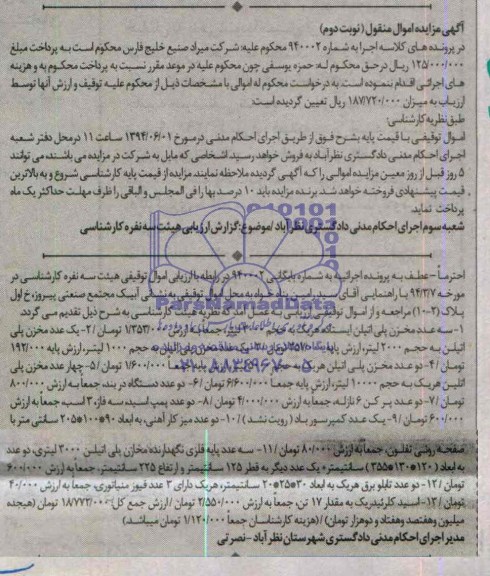 آگهی مزایده اموال منقول (نوبت دوم)
در پرونده های کلاسه اجرا به شماره ۹۴۰۰۰۲ محکوم علیه: شرکت میراد صنیع خلیج فارس محکوم است به پرداخت مبلغ
۱۲۵/۰۰۰/۰۰۰ ریال در حق محکوم له: حمزه یوسفی چون محکوم علیه در موعد مقرر نسبت به پرداخت محکوم به و هزینه
های اجرائی اقدام ننموده است. به درخواست محکوم له اموالی با مشخصات ذیل از محکوم علیه توقیف و ارزش آنها توسط
ارزیاب به میزان ۱۸۷/۷۲۰/۰۰۰ ریال تعیین گردیده است:
طبق نظریه کارشناسی:
اموال توقیفی با قیمت پایه بشرح فوق از طریق اجرای احکام مدنی در مورخ ۱۳۹۴/۰۶/۰۱ ساعت ۱۱ در محل دفتر شعبه
اجرای احکام مدنی دادگستری نظرآباد به فروش خواهد رسید. اشخاصی که مایل به شرکت در مزایده می باشند، می توانند
۵ روز قبل از روز معین مزایده اموالی را که آگهی گردیده ملاحظه نمایند. مزایده از قیمت پایه کارشناسی شروع و به بالاترین
قیمت پیشنهادی فروخته خواهد شد. برنده مزایده باید ۱۰ درصد بها را فی المجلس و الباقی را ظرف مهلت حداکثر یک ماه
پرداخت نماید.
شعبه سوم اجرای احکام مدنی دادگستری نظرآباد / موضوع: گزارش ارزیابی هیئت سه نفره کارشناسی
احتراماً - عطف به پرونده اجرائیه به شماره بایگانی ۹۴۰۰۰۲ در رابطه با ارزیابی اموال توقیفی هیئت سه نفره کارشناسی در
مورخه ۹۴/۳/۷ با راهنمایی آقای به محل اموال توقیفی به نشانی آبیک مجتمع صنعتی پیروز، خ اول
پلاک (۲-۱۰) مراجعه و از اموال توقیفی ارزیابی به عمل آمد که نظریه هیئت کارشناسی به شرح ذیل تقدیم می گردد.
۱- سه عدد مخزن پلی اتیلن ایستاده هریک به جمعاً به ارزش تومان / ۲- یک عدد مخزن پلی
اتیلن به حجم ۲۰۰۰ لیتر، ارزش پایه عدد مخزن پلی اتیلن به حجم ۱۰۰۰ لیتر، ارزش پایه ۱۹۲/۰۰۰
تومان / ۴- دو عدد مخزن پلی اتیلن هریک به حجم ارزش پایه جمعاً ۱/۶۰۰/۰۰۰ تومان / ۵- چهار عدد مخزن پلی
اتلین هریک به حجم ۱۰۰۰۰ لیتر، ارزش پایه جمعاً ۶/۶۰۰/۰۰۰ تومان / ۶- دو عدد دستگاه در بند، جمعاً به ارزش ۸۰۰/۰۰۰
تومان / ۷- دو عدد پرکن ۶ نازله، جمعاً به ارزش ۴/۰۰۰/۰۰۰ تومان / ۸- دو عدد پمپ اسید سه فاز، ۳ اسب، جمعاً به ارزش
۶۰۰/۰۰۰ تومان / ۹- یک عدد کمپرسور باد (رویت نشد) / ۱۰- دو عدد میز کار آهنی، به ابعاد ۹۰*۱۰۰*۲۰۵ سانتی متر با
صفحه روئی تفلون، جمعاً به ارزش ۸۰/۰۰۰ تومان / ۱۱- سه عدد پایه فلزی نگهدارنده مخازن پلی اتیلن ۳۰۰۰ لیتری، دو عدد
به ابعاد (۱۲۰*۱۳۰*۳۵۵) سانتیمتر، یک عدد دیگر به قطر ۱۲۵ سانتیمتر و ارتفاع ۲۲۵ سانتیمتر، جمعاً به ارزش ۶۰۰/۰۰۰
تومان / ۱۲- دو عدد تابلو برق هریک به ابعاد ۳۰*۲۵*۲۰ سانتیمتر، هریک دارای ۳ عدد فیوز مینیاتوری، جمعاً به ارزش ۴۰/۰۰۰
تومان / ۱۳- اسید کلریدریک به مقدار ۱۷ تن، جمعاً به ارزش ۲/۵۵۰/۰۰۰ تومان / ارزش جمع کل ۱۸/۷۷۲/۰۰۰ تومان (هیجده
میلیون و هفتصد و هفتاد و دو هزار تومان) / (هزینه کارشناسان جمعاً ۱/۱۲۰/۰۰۰ تومان میباشد.)
مدیر اجرای احکام مدنی دادگستری شهرستان نظرآباد - نصرتی
ParsNamadData